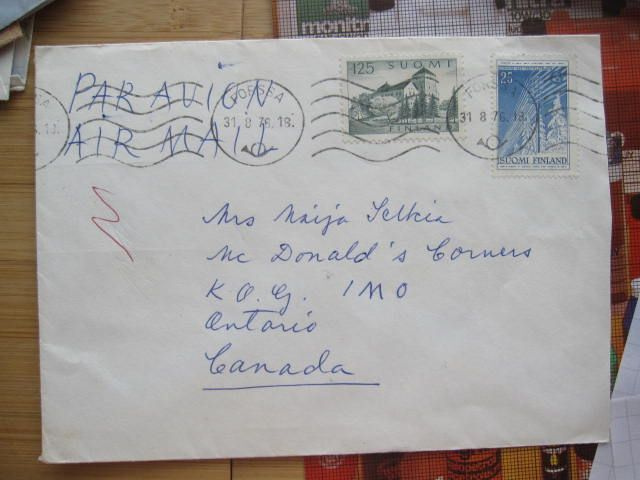 monitri
PAR AVION
AIR MAIL
FORSSA
31.8.76.18.
125 SUOMI
FINLAND
25
SUOMI FINLAND
FORSSA
31 8 76.18.
Mrs Maija
Mc Donald's Corners
K O.G. 1M0
Ontario
Canada